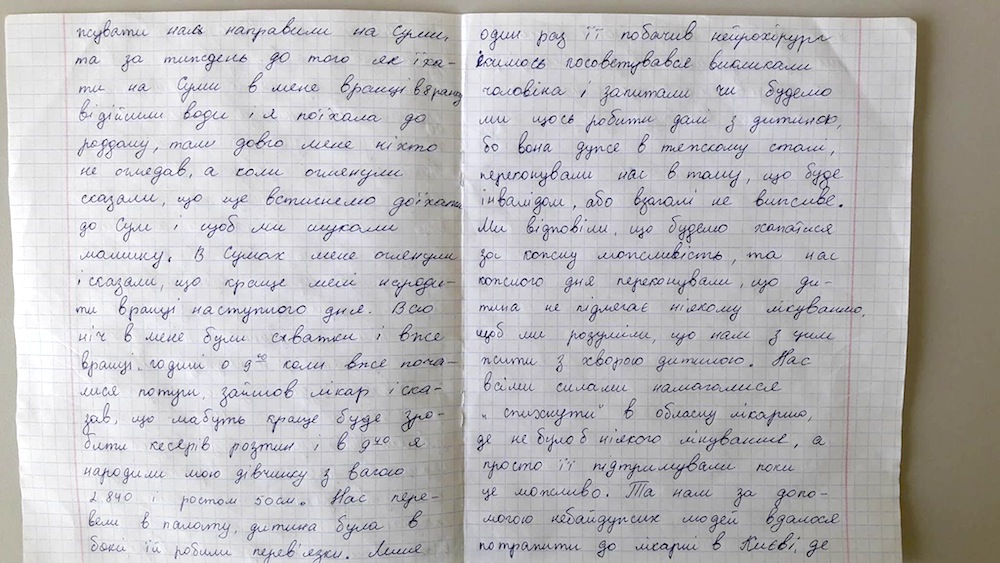 псувати нам направили на Суми,
та за тиждень до того як їха-
ти на Суми в мене вранці в 8 ранку
відійшли води і я поїхала до
роддому, там довго мене ніхто
не огледав, а коли оглянули
сказали, що ще встигнемо доїхати
до Сум і щоб ми шукали
машину. В Сумах мене оглянули
і сказали, що краще мені народи-
ти вранці наступного дня. Всю
ніч в мене були схватки і вже
вранці годині о 9⁰⁰ коли вже поча-
лися потуги, зайшов лікар і ска-
зав, що мабуть краще буде зро-
бити кесерів розтин і в 9⁴⁰ я
народили мою дівчинку з вагою
2.840 і ростом 50см. Нас пере-
вели в палату, дитина була в
боксі їй робили перев'язки. Лише
один раз її побачив нейрохірург
з кимось посоветувався викликали
чоловіка і запитали чи будемо
ми щось робити далі з дитиною,
бо вона дуже в тяжкому стані,
переконували нас в тому, що буде
інвалідом, або взагалі не виживе.
Ми відповіли, що будемо хапатися
за кожну можливість, та нас
кожного дня переконували, що ди-
тина не підлягає ніякому лікуванню,
щоб ми розуміли, що нам з цим
жити з хворою дитиною. Нас
всіми силами намагалися
"спихнути" в обласну лікарню,
де не було б ніякого лікування, а
просто її підтримували поки
це можливо. Та нам за допо-
могою небайдужих людей вдалося
потрапити до лікарні в Києві, де